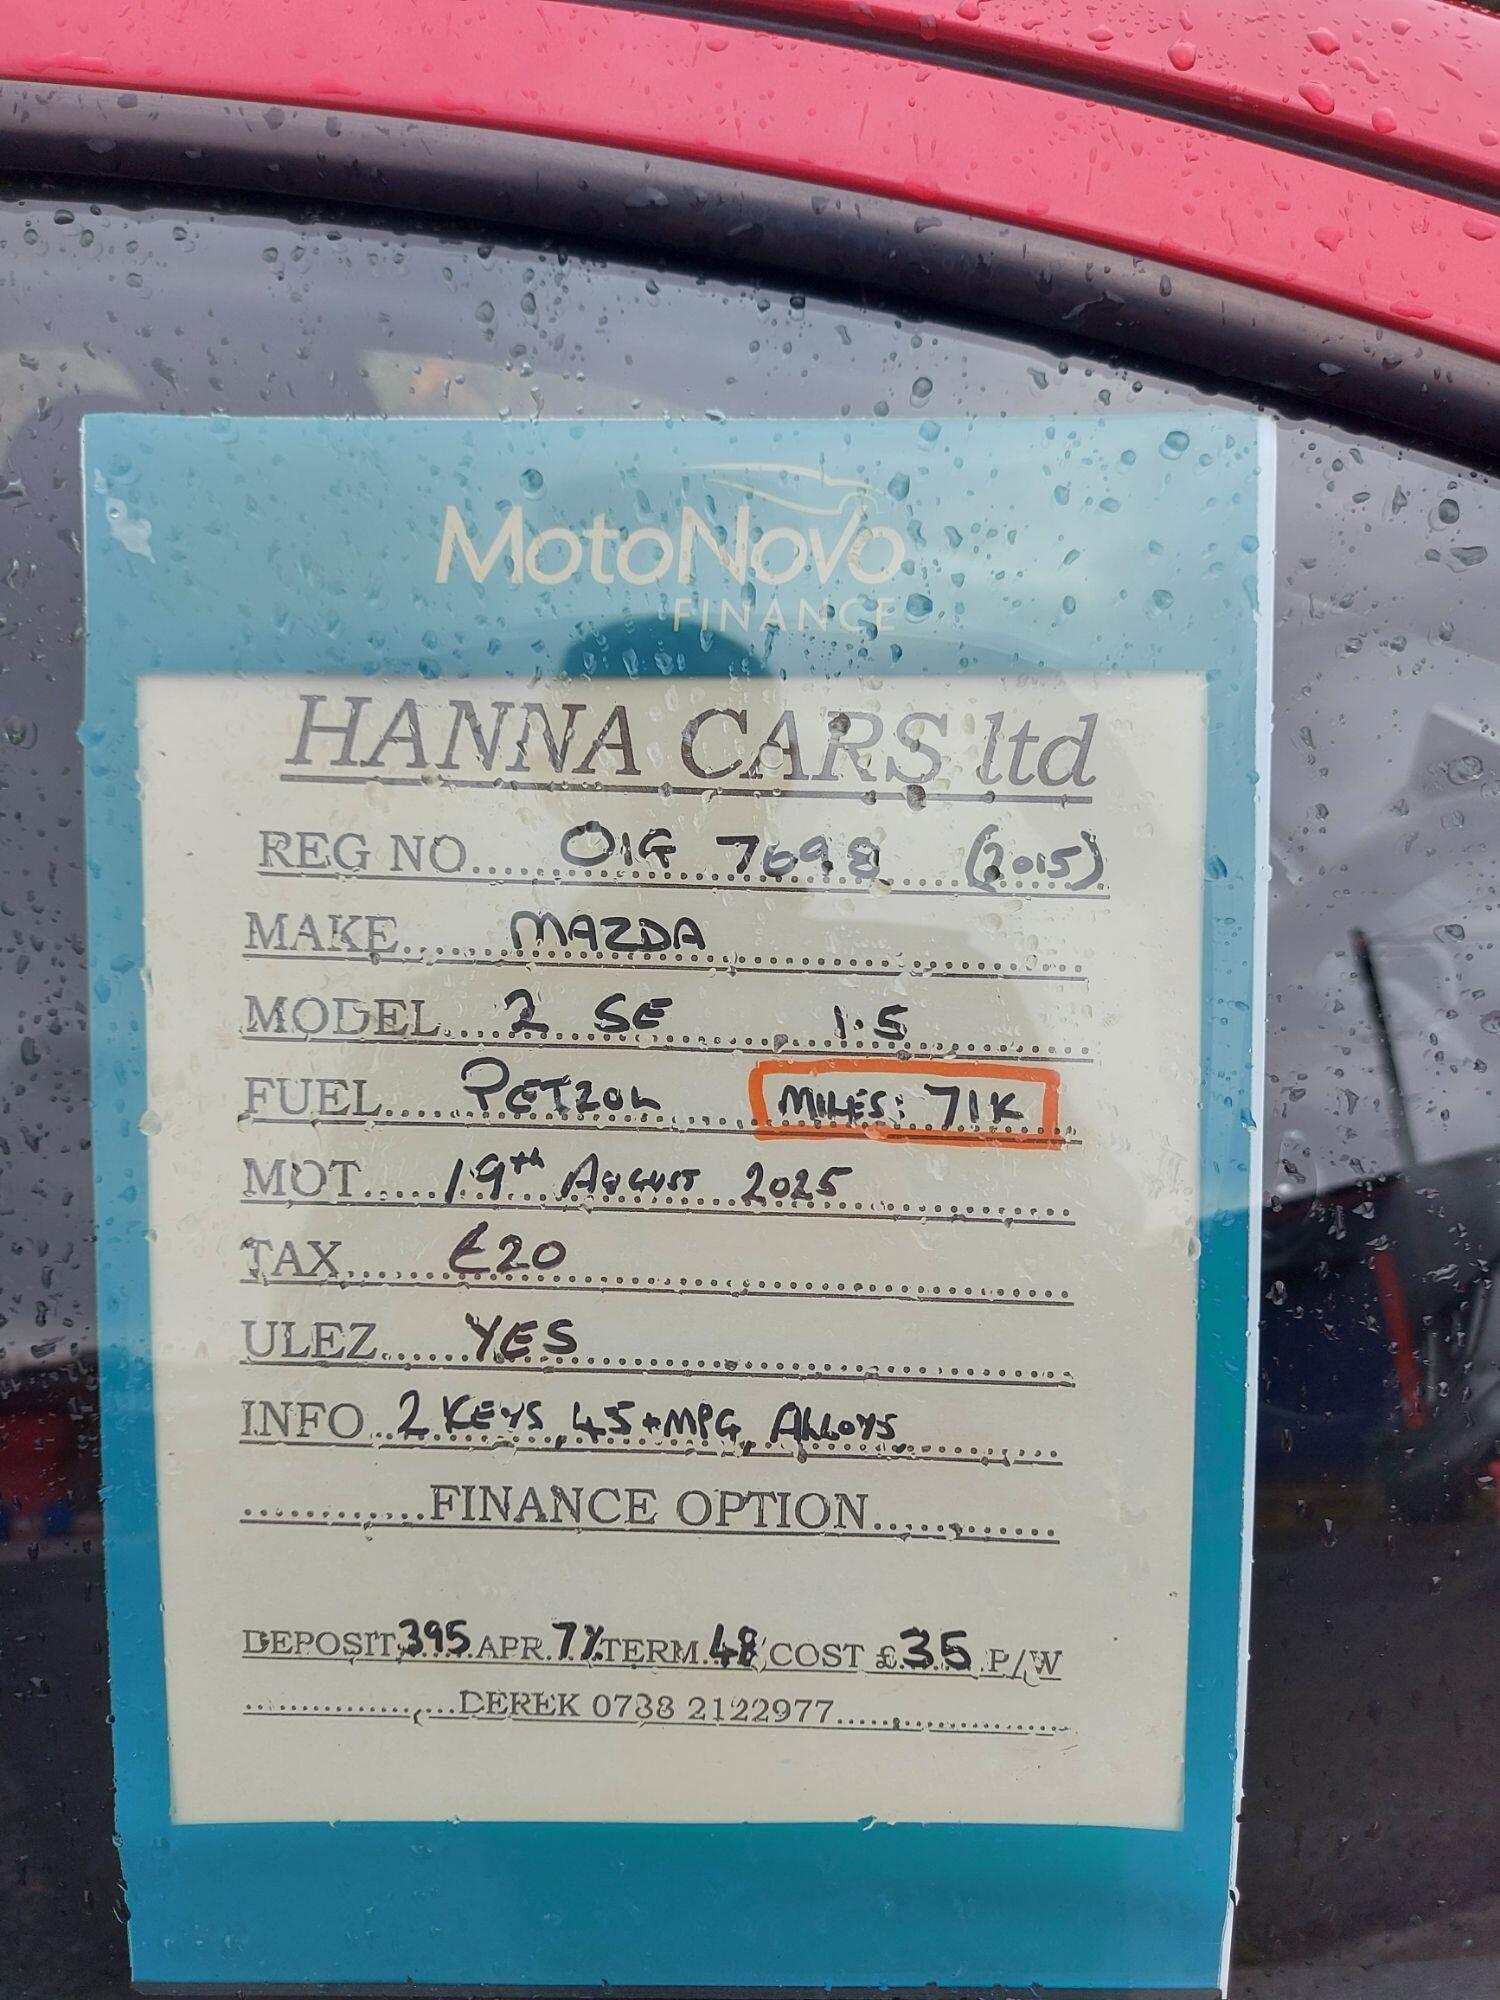 MotoNovo
FINANCE
HANNA CARS ltd
REG NO.... OIG 7698 (2015)
MAKE.... MAZDA
MODEL.... 2 SE 1.5
FUEL.... PETROL MILES: 71K
MOT.... 19th AUGUST 2025
TAX.... £20
ULEZ.... YES
INFO.. 2 KEYS, 45+MPG, ALLOYS
............FINANCE OPTION............
DEPOSIT 395 APR. 7% TERM. 48 COST £ 35 P/W
................DEREK 0738 2122977................